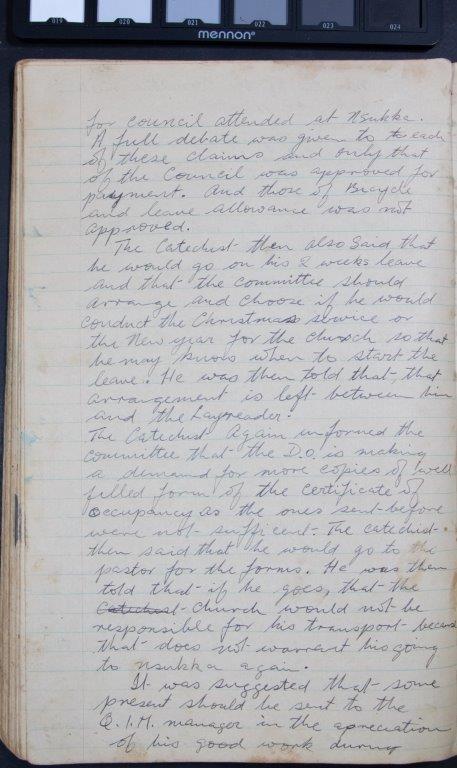 019 020 021 022 023 024
mennon
for council attended at Nsukka.
A full debate was given to to each
of these claims and only that
of the Council was approved for
payment. And those of Bicycle
and leave allowance was not
approved.
The Catechist then also said that
he would go on his 2 weeks leave
and that the committee should
arrange and choose if he would
conduct the Christmas service or
the New year for the church so that
he may know when to start the
leave. He was then told that that
arrangement is left between him
and the Layreader.
The Catechist Again informed the
committee that the D.O. is making
a demand for more copies of well
filled form of the certificate of
Occupancy as the ones sent before
were not sufficent. The catechist
then said that he would go to the
pastor for the forms. He was then
told that if he goes, that the
Catechist Church would not be
responsible for his transport because
that does not warrant his going
to nsukka again.
It was suggested that some
present should be sent to the
Q.I.M. manager in the apreciation
of his good work during